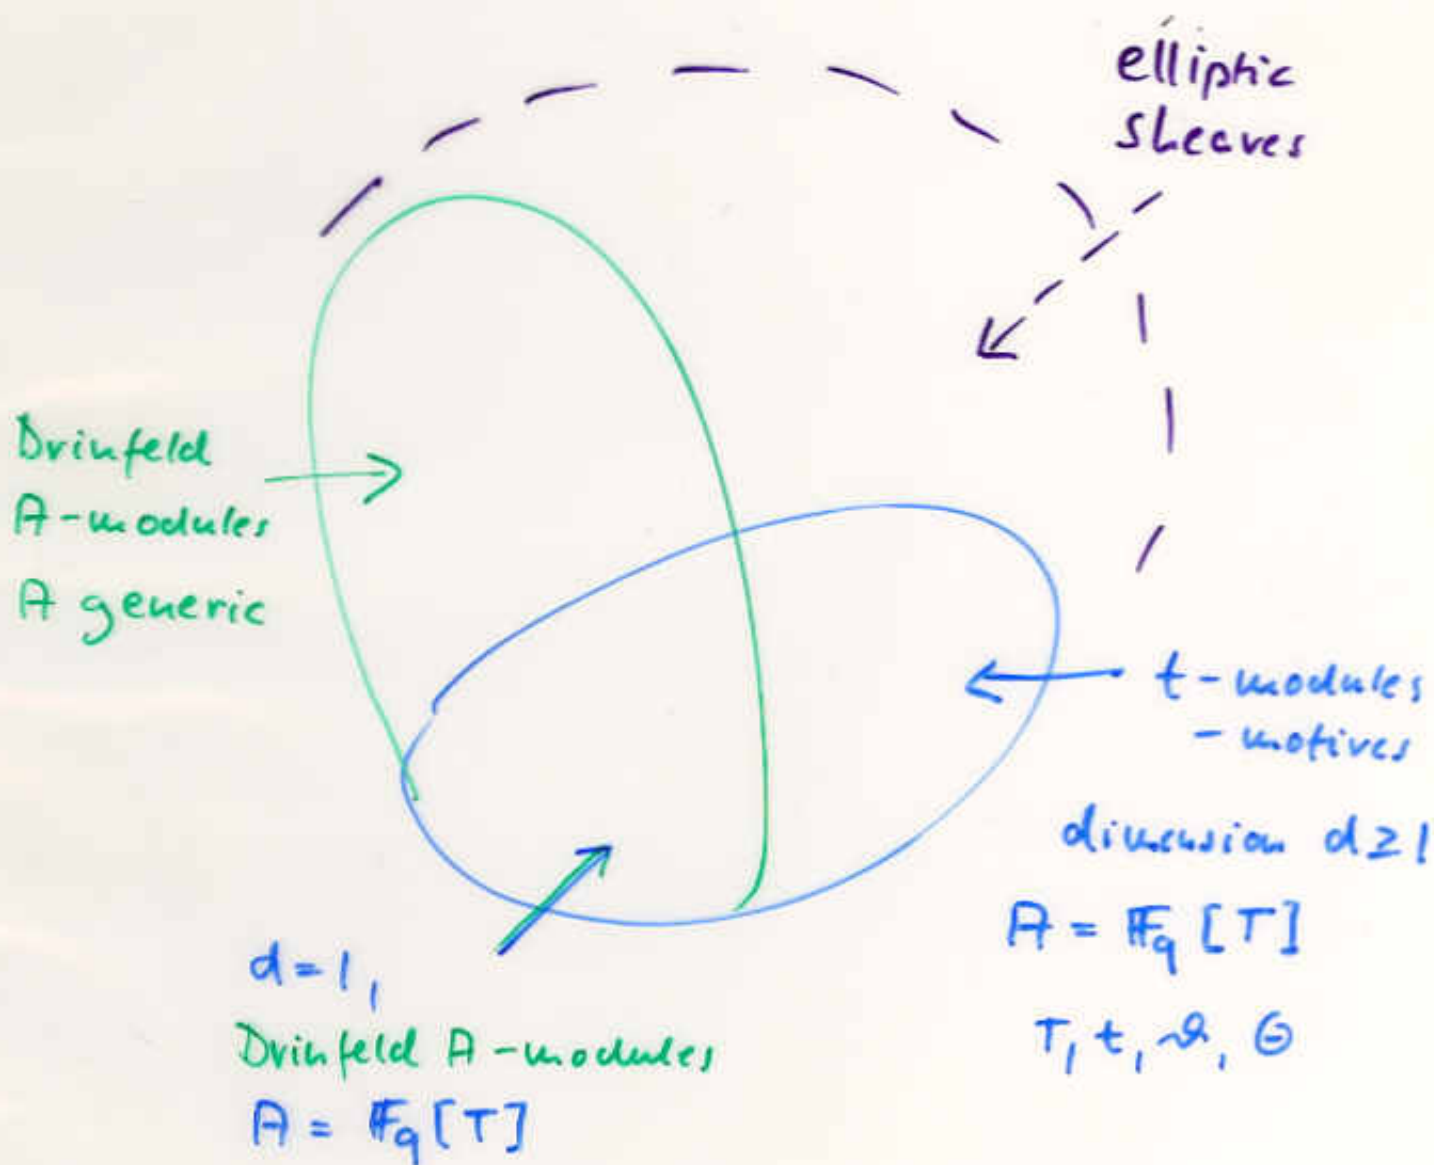 elliptic
sheaves
Drinfeld
A-modules
A generic
t-modules
-motives
dimension d≥1
A = 𝔽q [T]
T, t, ϑ, Θ
d=1,
Drinfeld A-modules
A = 𝔽q [T]